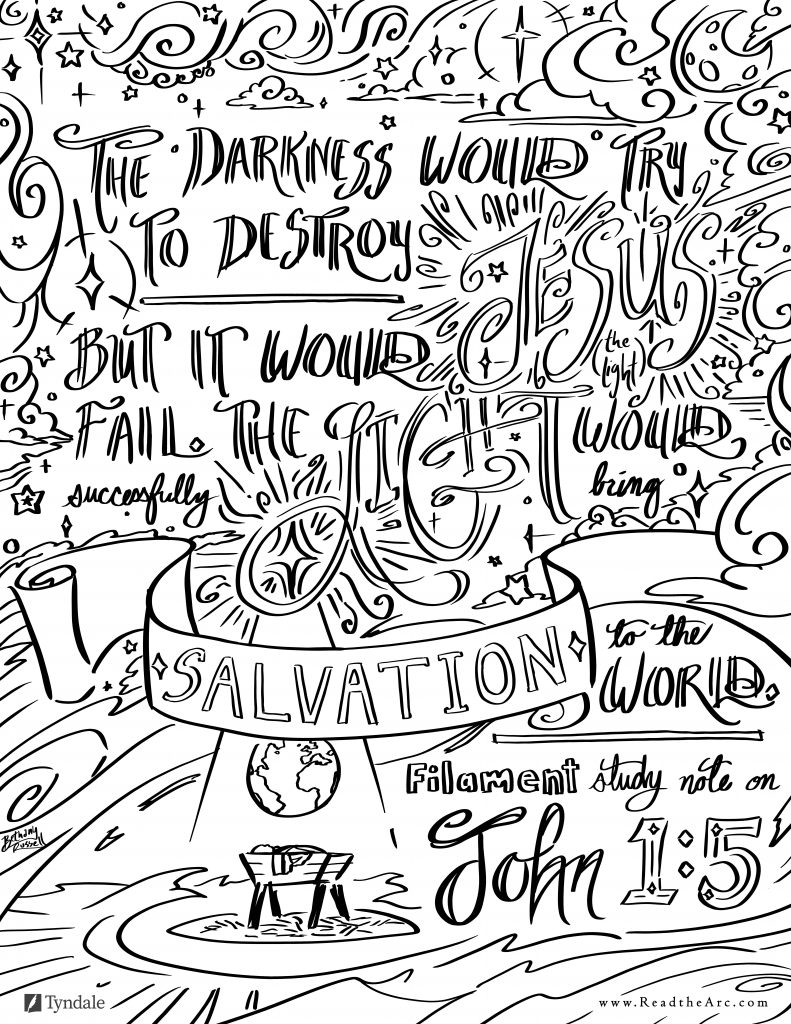 THE DARKNESS WOULD TRY
TO DESTROY JESUS
(the light)
BUT IT WOULD
FAIL. THE LIGHT WOULD
successfully bring
SALVATION
to the
WORLD.
Filament study note on
John 1:5
Bethany
Russell
Tyndale
www.ReadtheArc.com